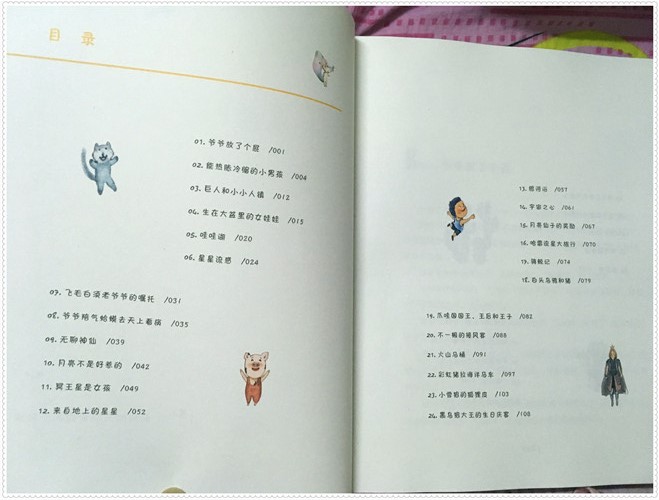 目 录
01. 爷爷放了个屁 /001
02. 能热胀冷缩的小男孩 /004
03. 巨人和小小人镇 /012
04. 生在大蒜里的女娃娃 /015
05. 哇哇湖 /020
06. 星星流感 /024
07. 飞毛白须老爷爷的嘱托 /031
08. 爷爷陪气蛤蟆去天上看病 /035
09. 无聊神仙 /039
10. 月亮不是好惹的 /042
11. 冥王星是女孩 /049
12. 来自地上的星星 /052
13. 银河运 /057
14. 宇宙之心 /061
15. 月亮仙子的奖励 /067
16. 哈雷彗星大旅行 /070
17. 骑鲸记 /074
18. 白头鸟鸦和猪 /079
19. 爪哇国国王、王后和王子 /082
20. 不一般的捕风客 /088
21. 火山马桶 /091
22. 彩虹猪拉海洋马车 /097
23. 小雪狼的狐狸皮 /103
24. 黑鸟狼大王的生日庆客 /108